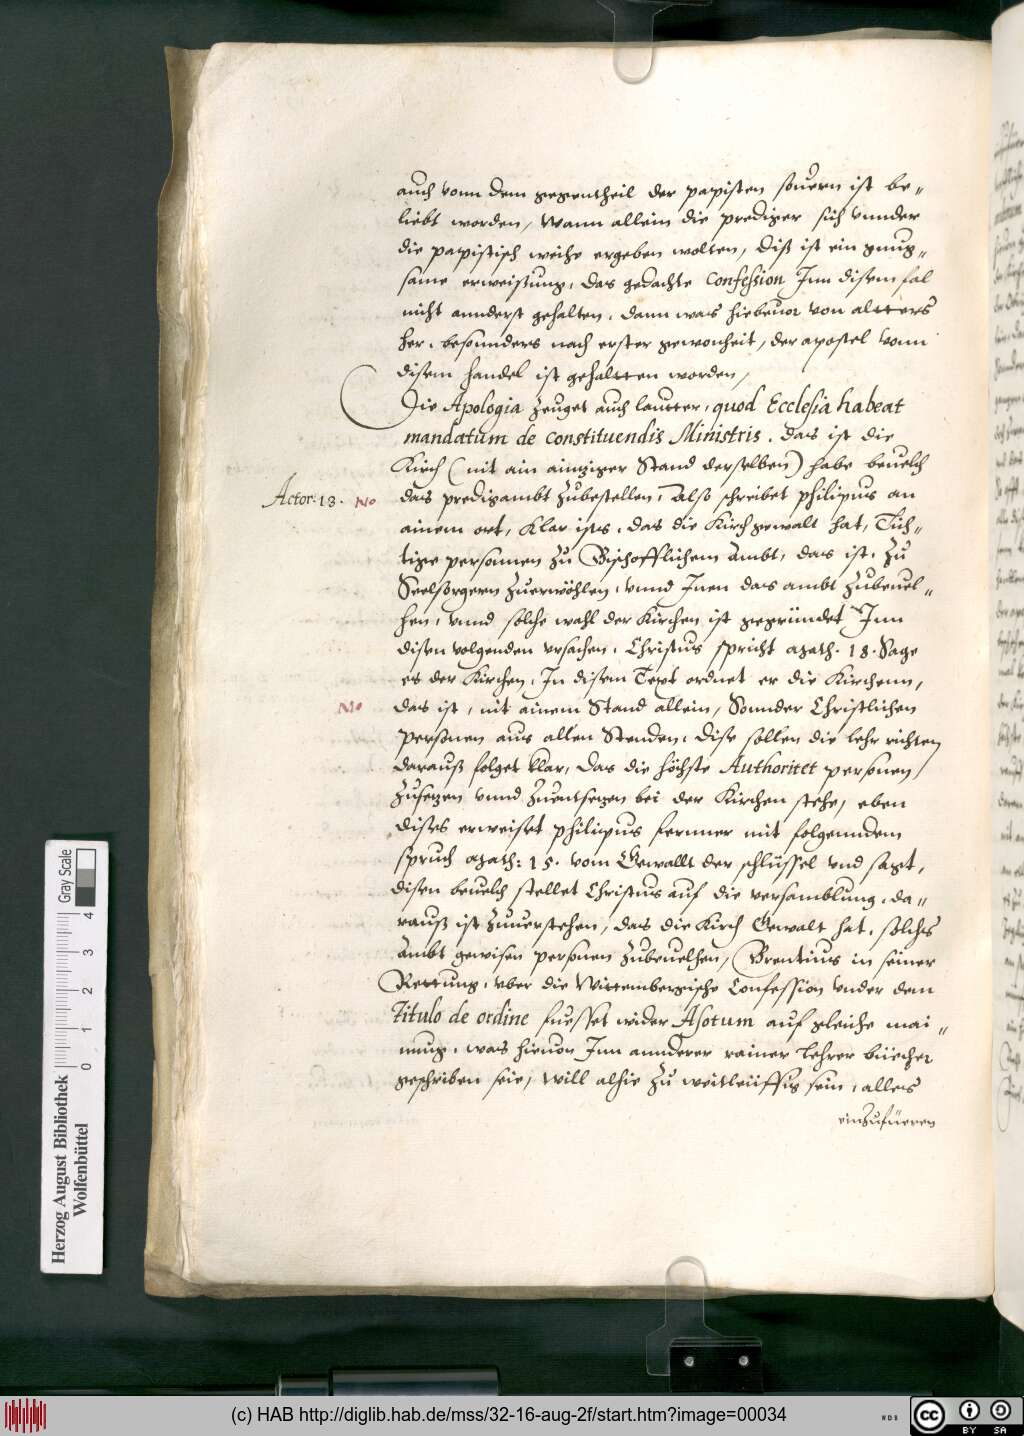 auch vonn dem gegentheil der papisten souern ist be„
liebt worden, Wann allein die prediger sich vnnder
die papistisch weihe ergeben wolten, Diß ist ein gnug„
same erweisung, das gedachte Confession Inn disem fal
nicht annderst gehalten, dann was hieuor von altters
her, besonnders nach erster gewonheit, der apostel vonn
disem handel ist gehaltten worden,
Die Apologia zeuget auch lautter, quod Ecclesia habeat
mandatum de constituendis Ministris. das ist die
Kirch (nit ain ainziger Stand derselben) habe beuelch
Actor: 13. No
das predigambt zubestellen, Also schreibet philippus an
ainem ort, Klar ists, das die Kirch gewalt hat, Tüch„
tige personen zu Bischofflichem Ambt, das ist, zu
Seelsorgern zuerwöhlen, vnnd Inen das ambt zubeuel„
hen, vnnd solche wahl der Kirchen ist gegründet Inn
disen volgenden vrsachen, Christus spricht Math. 18. Sage
es der Kirchen, In disem Text ordnet er die Kirchenn,
No
das ist, nit ainem Stand allein, Sonnder Christlichen
personen aus allen Stenden, Dise sollen die lehr richten
darauß folget klar, das die höchste Authoritet personen
zusezen vnnd zuentsezen bei der Kirchen stehe, eben
dises erweiset philippus fernner mit folgenndem
spruch Math: 15. vom Gewallt der schlüssel vnd sagt,
disen beuelch stellet Christus auf die versamblung, da„
rauß ist zuuerstehen, das die Kirch Gewalt hat, solches
Ambt gewisen personen zubeuelhen, Brentius in seiner
Rettung, vber die Wirttembergische Confession vnder dem
Titulo de ordine fuesset wider Asotum auf gleiche mai„
nung, was hieuon Inn annderer rainer lehrer büecher
geschriben seie, will alhie zu weitleüffig sein, alles
einzufüeren
Herzog August Bibliothek
Wolfenbüttel
0 1 2 3 4
Gray Scale
(c) HAB http://diglib.hab.de/mss/32-16-aug-2f/start.htm?image=00034
WDB
CC BY SA